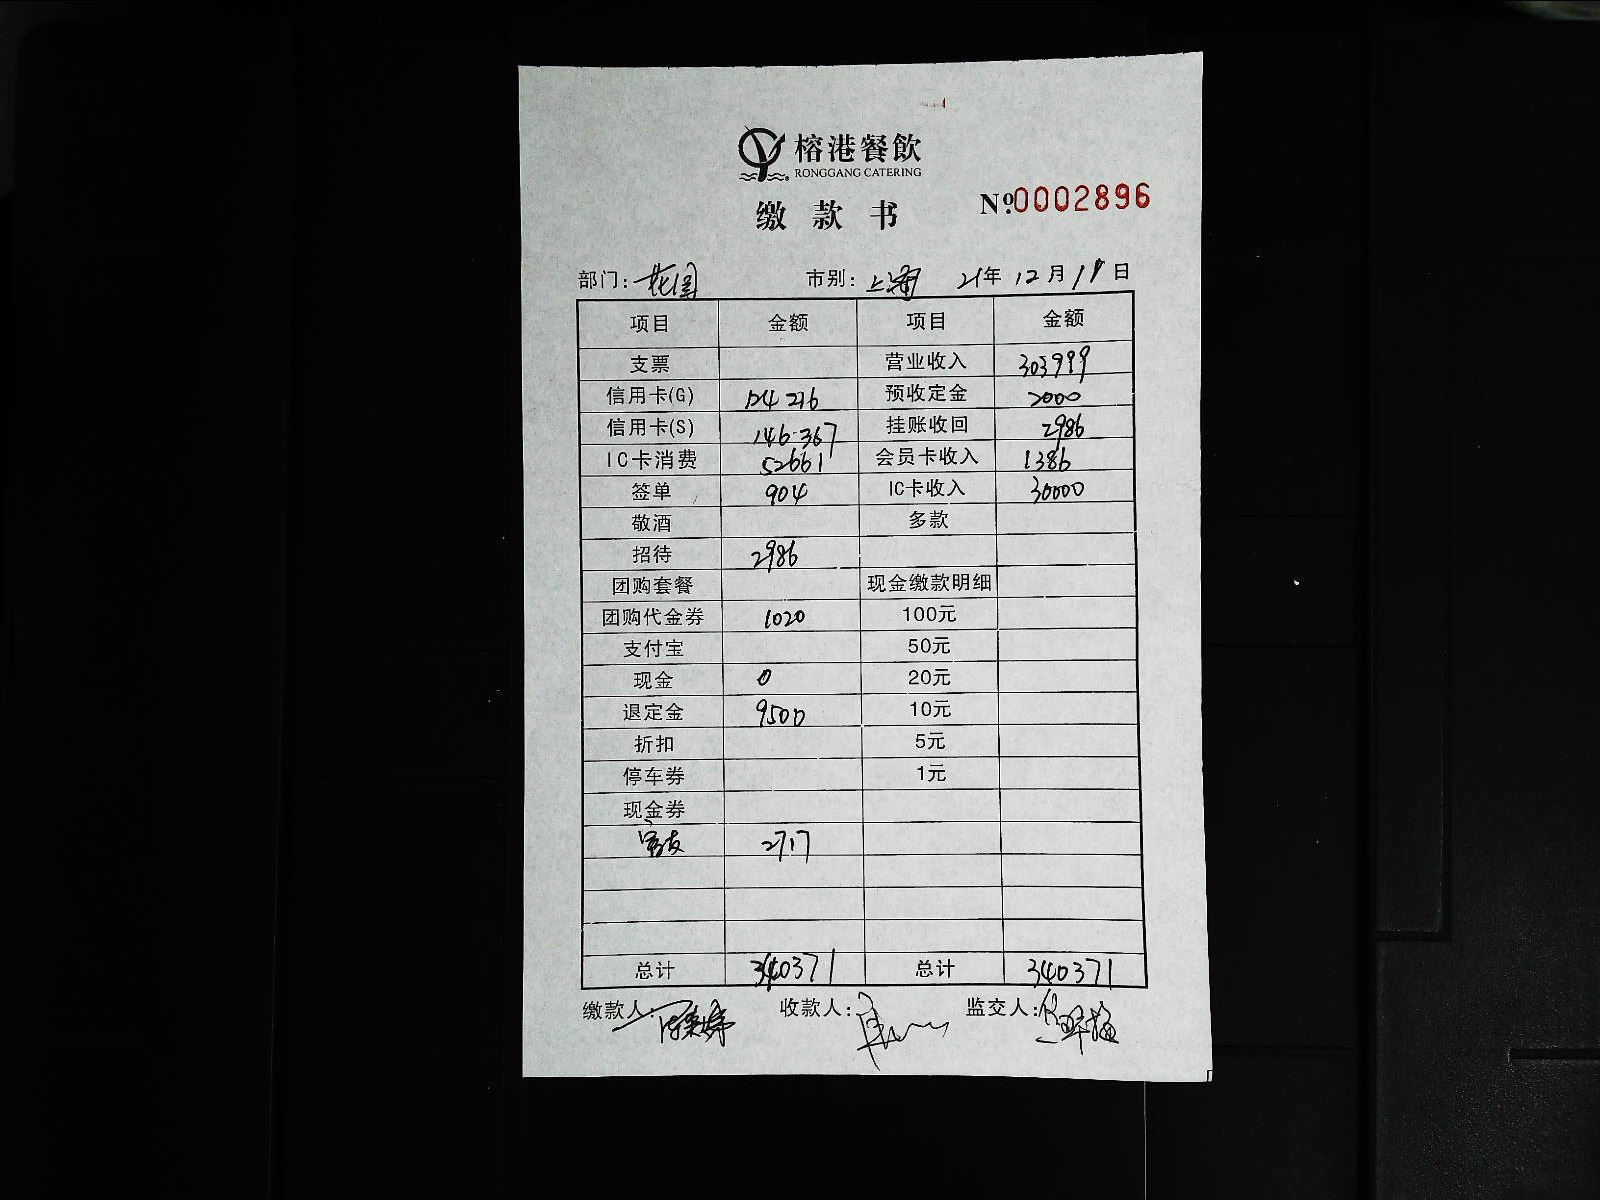 榕港餐飲
RONGGANG CATERING
缴款书 №0002896
部门: 花园 市别: 上海 21年12月19日
项目 金额 项目 金额
支票 营业收入 303999
信用卡(G) 124216 预收定金 2000
信用卡(S) 146367 挂账收回 2986
IC卡消费 52661 会员卡收入 1386
签单 904 IC卡收入 30000
敬酒 多款
招待 2986
团购套餐 现金缴款明细
团购代金券 1020 100元
支付宝 50元
现金 0 20元
退定金 9500 10元
折扣 5元
停车券 1元
现金券
2717
总计 340371 总计 340371
缴款人: 收款人: 监交人: